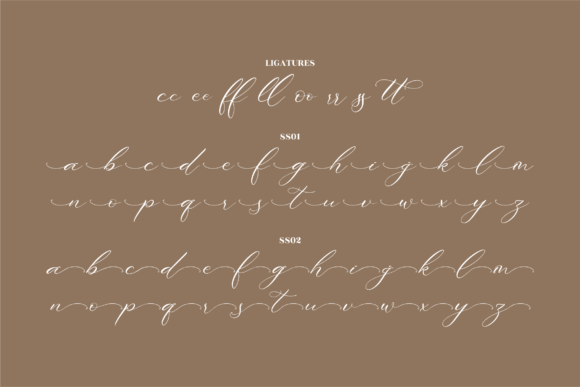 LIGATURES
cc ee ff ll oo rr ss tt
SS01
a b c d e f g h i j k l m
n o p q r s t u v w x y z
SS02
a b c d e f g h i j k l m
n o p q r s t u v w x y z